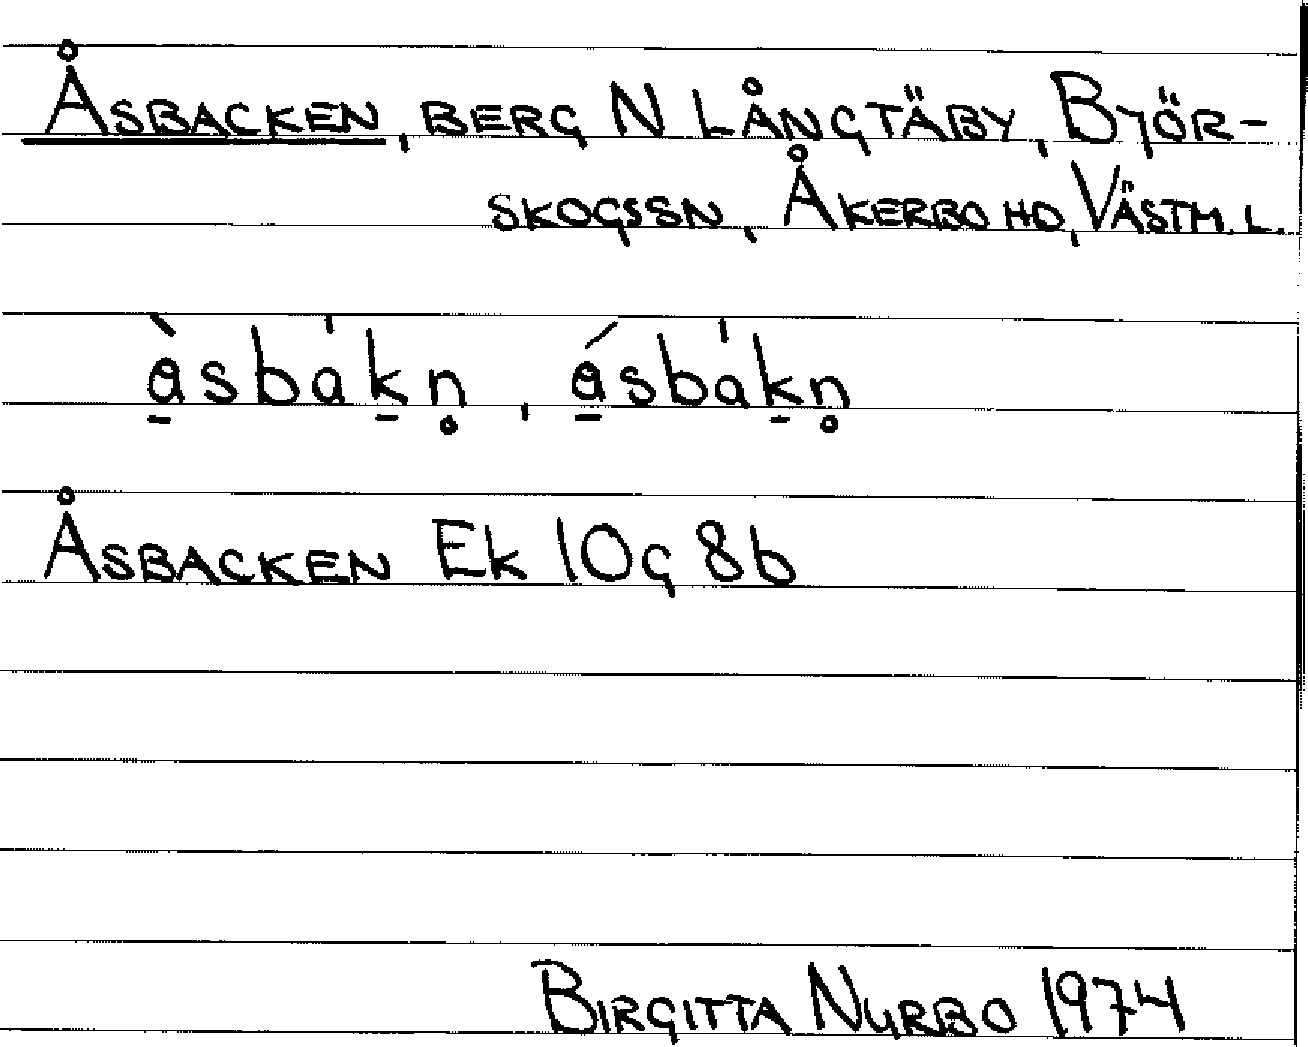 ÅSBACKEN, BERG N LÅNGTÄBY, BJÖR-
SKOGSSN, ÅKERBO HD, VÄSTM. L.
å̱̀sbáḵn̥, ǻ̱sbáḵn̥
ÅSBACKEN Ek 10g 8b
BIRGITTA NYRBO 1974